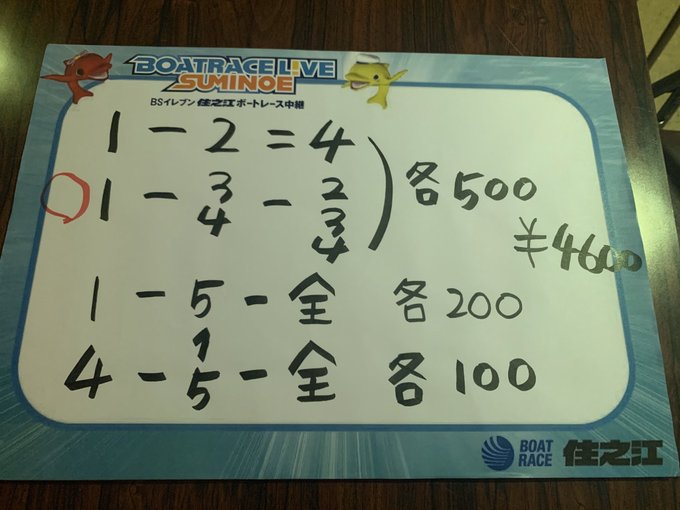 BOATRACE LIVE
SUMINOE
BSイレブン 住之江 ボートレース中継
1 - 2 = 4
1 - 3 4 - 2 3 4
各500
¥4600
1 - 5 - 全 各200
4 - 1 5 - 全 各100
BOAT RACE 住之江